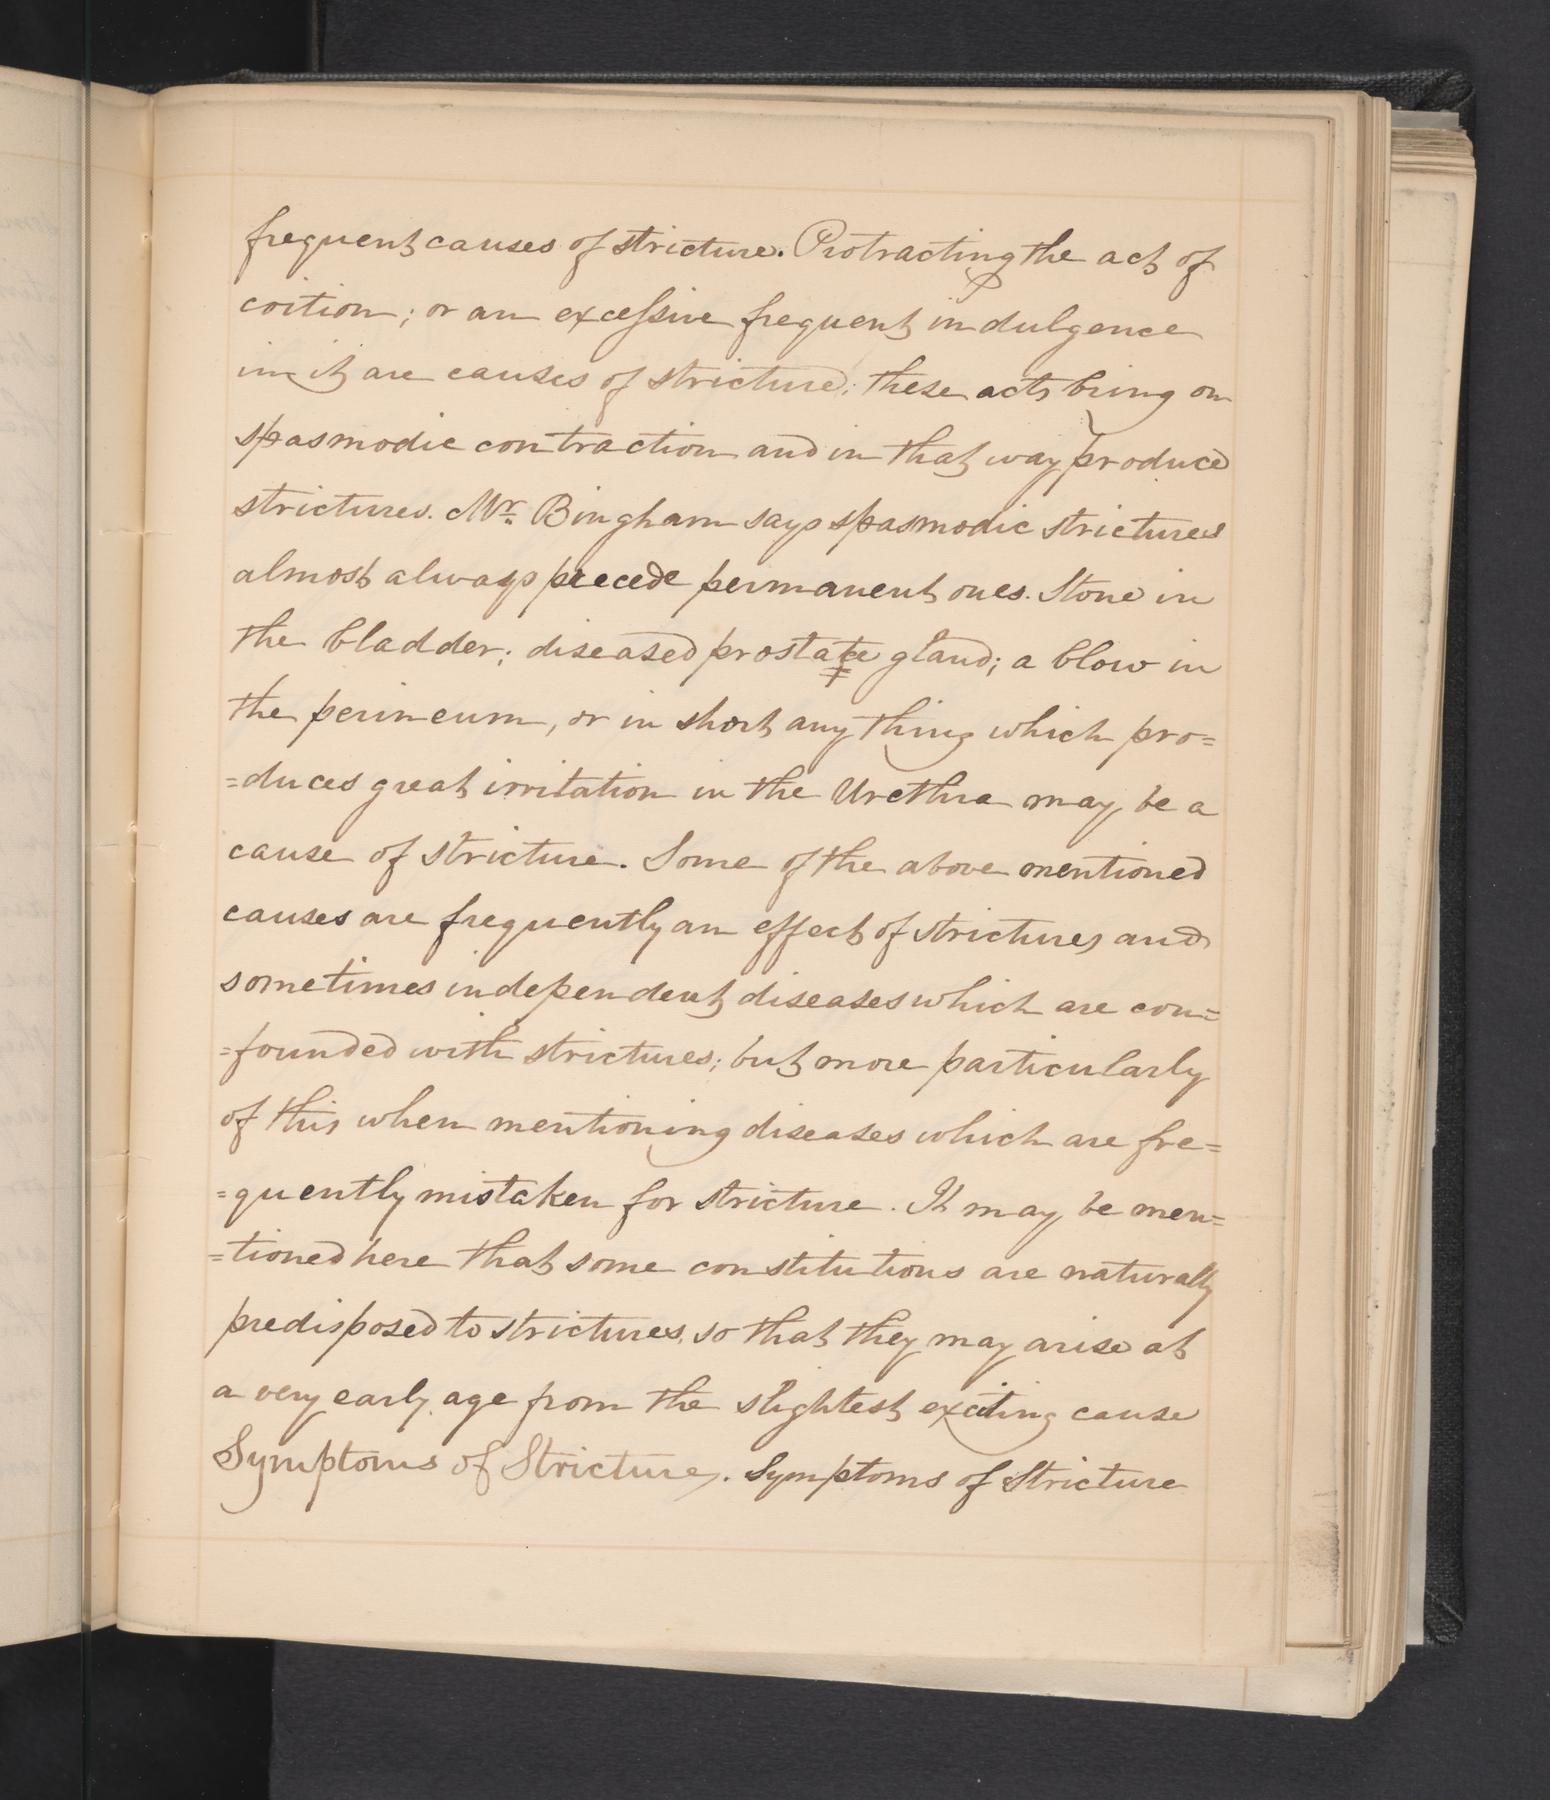 frequent causes of stricture. Protracting the act of
coition; or an excessive frequent indulgence
in it are causes of stricture; these acts bring on
spasmodic contraction and in that way produce
strictures. Mr. Bingham says spasmodic strictures
almost always precede permanent ones. Stone in
the bladder; diseased prostate gland; a blow in
the perineum, or in short any thing which pro=
=duces great irritation in the Urethra may be a
cause of stricture. Some of the above mentioned
causes are frequently an effect of strictures and
sometimes independent diseases which are con=
=founded with strictures; but more particularly
of this when mentioning diseases which are fre=
=quently mistaken for stricture. It may be men=
=tioned here that some constitutions are naturally
predisposed to strictures, so that they may arise at
a very early age from the slightest exciting cause
Symptoms of Stricture. Symptoms of Stricture